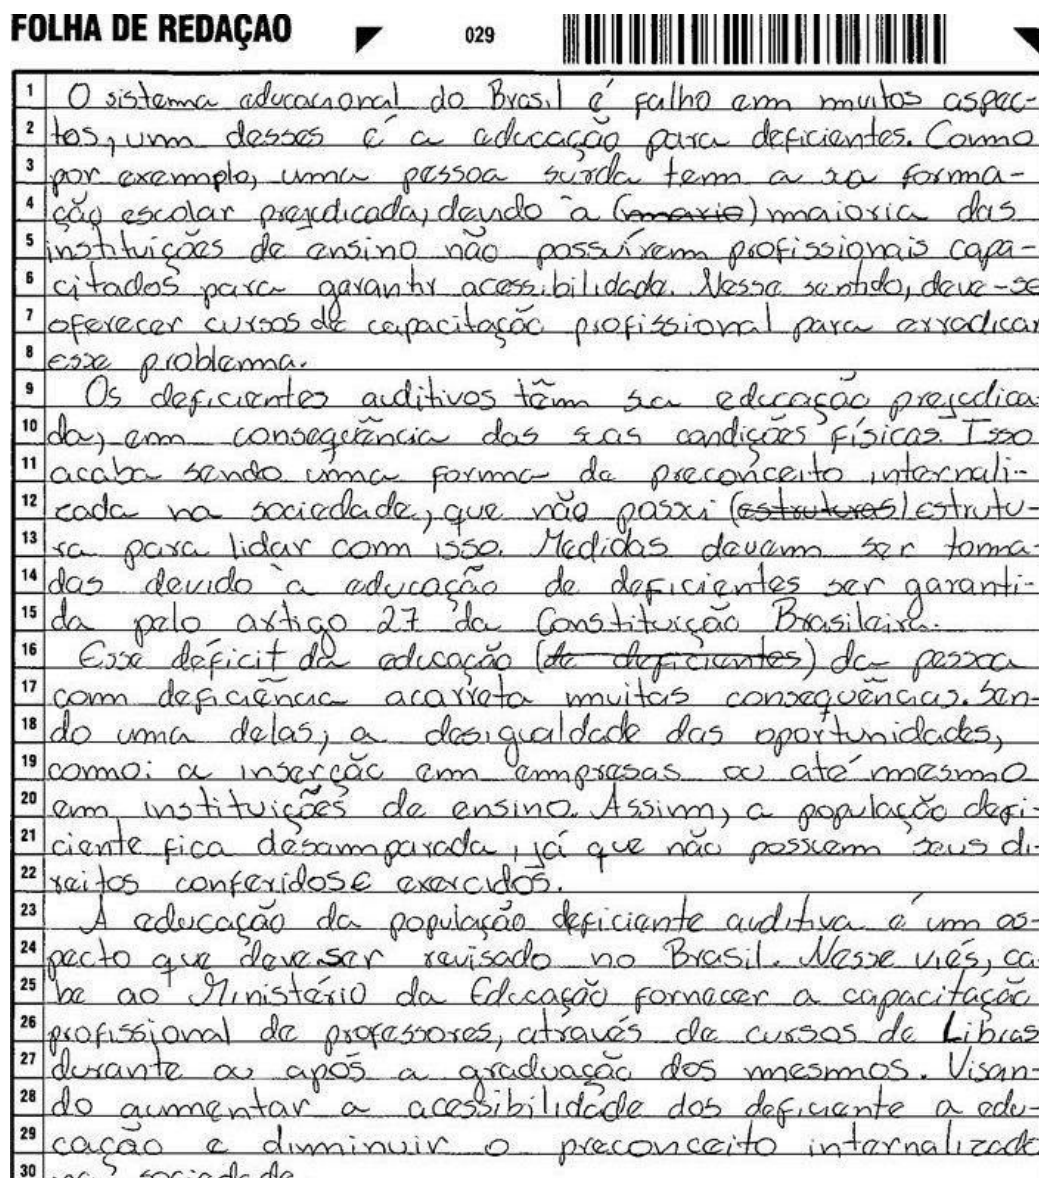 FOLHA DE REDAÇÃO
029
1 O sistema educacional do Brasil é falho em muitos aspec-
2 tos, um desses é a educação para deficientes. Como
3 por exemplo, uma pessoa surda tem a sua forma-
4 ção escolar prejudicada, devido à (mario) maioria das
5 instituições de ensino não possuírem profissionais capa-
6 citados para garantir acessibilidade. Nesse sentido, deve-se
7 oferecer cursos de capacitação profissional para erradicar
8 esse problema.
9 Os deficientes auditivos têm sua educação prejudica-
10 da, em consequência das suas condições físicas. Isso
11 acaba sendo uma forma de preconceito internali-
12 zada na sociedade, que não possui (estruturas) estrutu-
13 ra para lidar com isso. Medidas devem ser toma-
14 das devido à educação de deficientes ser garanti-
15 da pelo artigo 27 da Constituição Brasileira.
16 Esse déficit da educação (de deficientes) da pessoa
17 com deficiência acarreta muitas consequências. Sen-
18 do uma delas, a desigualdade das oportunidades,
19 como: a inserção em empresas ou até mesmo
20 em instituições de ensino. Assim, a população defi-
21 ciente fica desamparada, já que não possuem seus di-
22 reitos conferidos e exercidos.
23 A educação da população deficiente auditiva é um as-
24 pecto que deve ser revisado no Brasil. Nesse viés, ca-
25 be ao Ministério da Educação fornecer a capacitação
26 profissional de professores, através de cursos de Libras
27 durante ou após a graduação dos mesmos. Visan-
28 do aumentar a acessibilidade dos deficiente a edu-
29 cação e diminuir o preconceito internalizado
30 na sociedade.